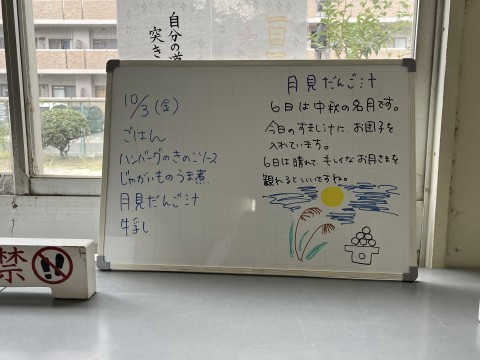 自分の道
突き
10/3(金)
ごはん
ハンバーグのきのこソース
じゃがいものうま煮
月見だんご汁
牛乳
月見だんご汁
6日は中秋の名月です。
今日のすまし汁に、お団子を
入れています。
6日は晴れて、キレイなお月さまを
観れるといいですね。
禁